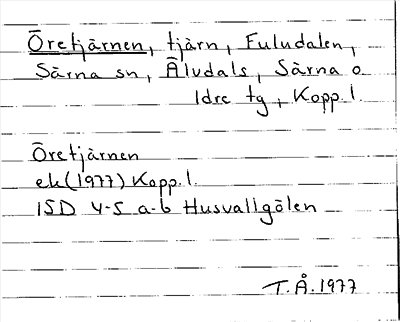 Öretjärnen, tjärn, Fuludalen,
Särna sn, Äludals, Särna o
Idre tg, Kopp. l.
Öretjärnen
ek (1977) Kopp. l.
15D 4-5 a-b Husvallgölen
T.Å. 1977